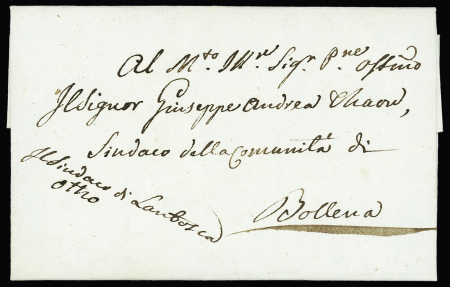 Al M.to Ill.re Sig.r P.ne
Il Signor Giuseppe Andrea Thaon,
Sindaco della Comunità di
Bollena
Il Sindaco di Lantosca
Otho